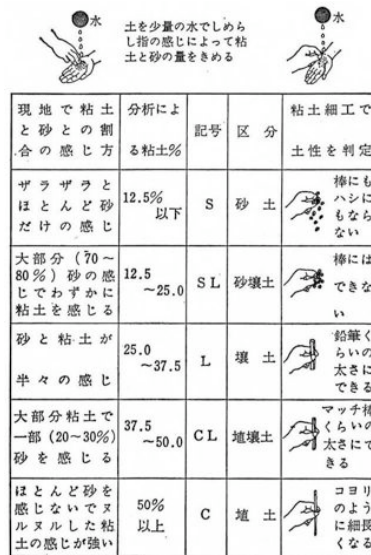 水
土を少量の水でしめら
し指の感じによって粘
土と砂の量をきめる
水
現地で粘土
と砂との割
合の感じ方
分析によ
る粘土%
記号
区分
粘土細工で
土性を判定
ザラザラと
ほとんど砂
だけの感じ
12.5%
以下
S
砂土
棒にも
ハシに
もなら
ない
大部分(70~
80%)砂の感
じでわずかに
粘土を感じる
12.5
~25.0
SL
砂壌土
棒には
できな
い
砂と粘土が
半々の感じ
25.0
~37.5
L
壌土
鉛筆く
らいの
太さに
できる
大部分粘土で
一部(20~30%)
砂を感じる
37.5
~50.0
CL
埴壌土
マッチ棒
くらいの
太さにで
きる
ほとんど砂を
感じないでヌ
ルヌルした粘
土の感じが強い
50%
以上
C
埴土
コヨリ
のよう
に細長
くなる